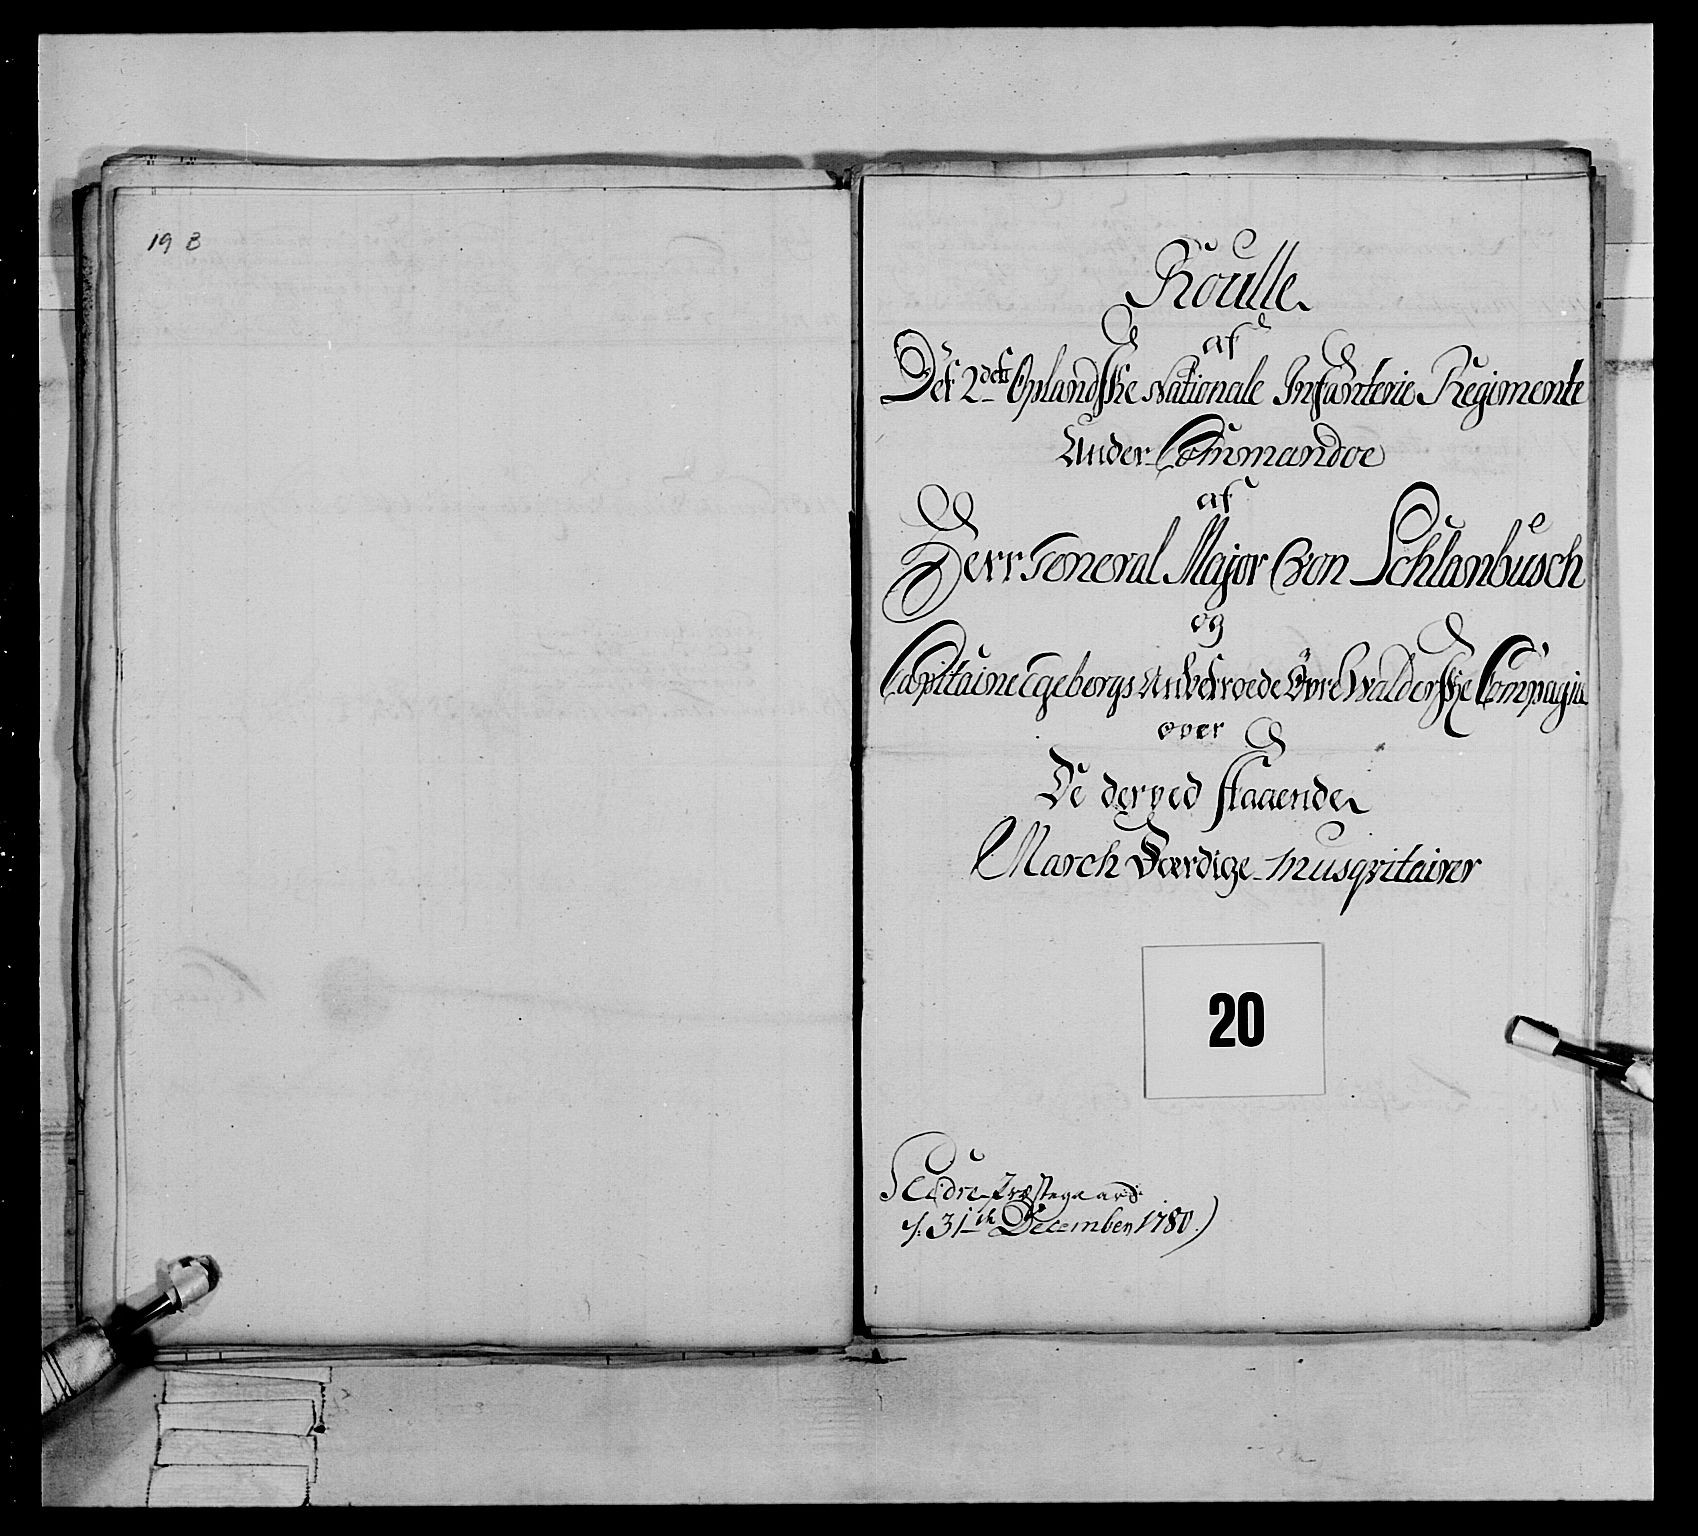 19 B
Roulle
af
Det 2det Oplandske Nationale Infanterie Regimente
Under Commandoe
af
Herr General Major Von Schlanbusch
og
Capitaine Egebergs Anbetroede Øvre Walderske Compagnie
over
De derved staaende
March Værdige Musqvitairer
20
Slidre Præstegaard
/: 31te December 1780.)